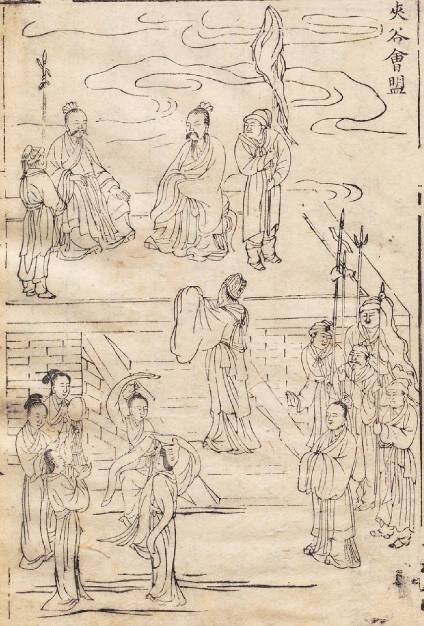 夾谷會盟